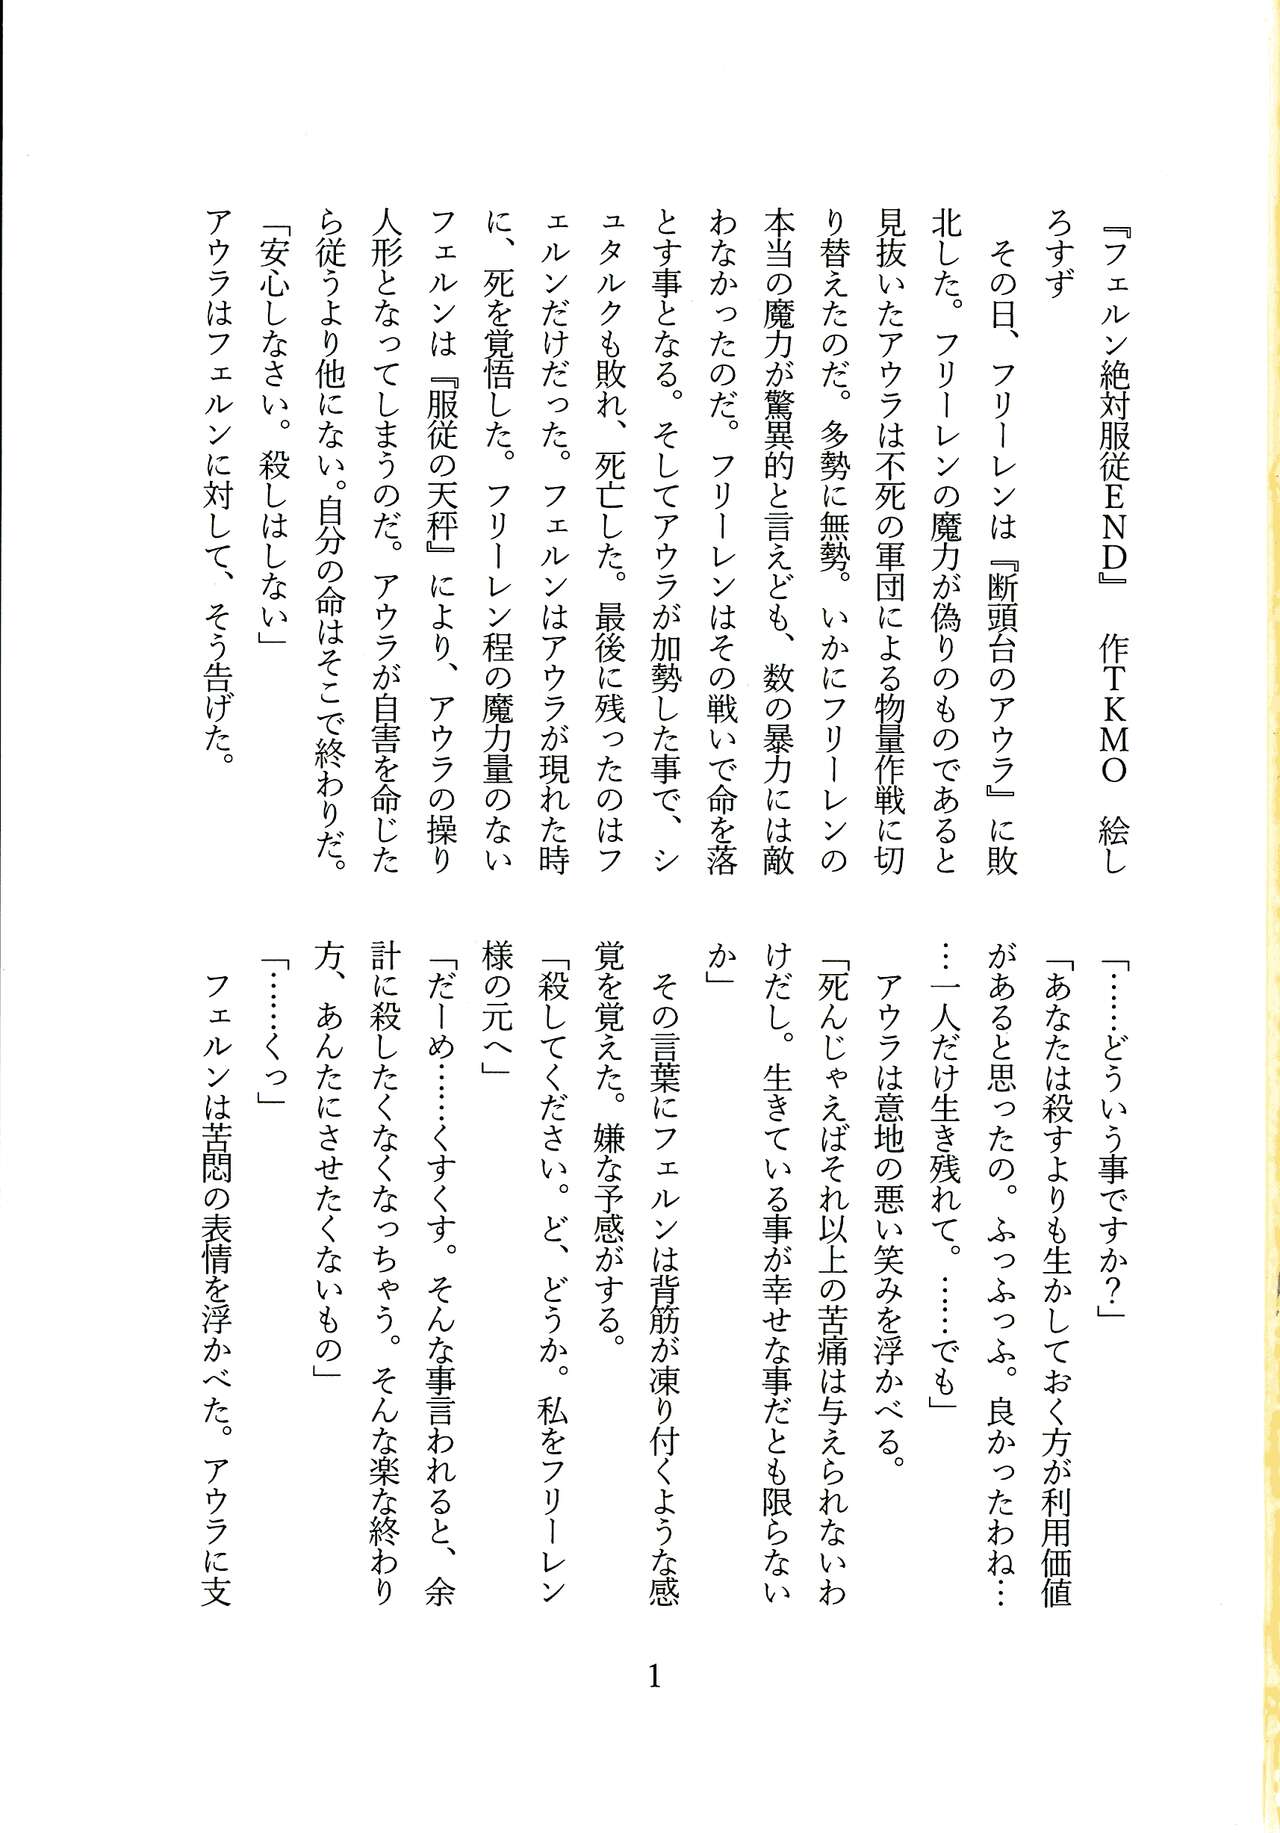 『フェルン絶対服従ＥＮＤ』　作ＴＫＭＯ　絵し
ろすず
　その日、フリーレンは『断頭台のアウラ』に敗
北した。フリーレンの魔力が偽りのものであると
見抜いたアウラは不死の軍団による物量作戦に切
り替えたのだ。多勢に無勢。いかにフリーレンの
本当の魔力が驚異的と言えども、数の暴力には敵
わなかったのだ。フリーレンはその戦いで命を落
とす事となる。そしてアウラが加勢した事で、シ
ュタルクも敗れ、死亡した。最後に残ったのはフ
ェルンだけだった。フェルンはアウラが現れた時
に、死を覚悟した。フリーレン程の魔力量のない
フェルンは『服従の天秤』により、アウラの操り
人形となってしまうのだ。アウラが自害を命じた
ら従うより他にない。自分の命はそこで終わりだ。
「安心しなさい。殺しはしない」
アウラはフェルンに対して、そう告げた。
「……どういう事ですか？」
「あなたは殺すよりも生かしておく方が利用価値
があると思ったの。ふっふっふ。良かったわね…
…一人だけ生き残れて。……でも」
　アウラは意地の悪い笑みを浮かべる。
「死んじゃえばそれ以上の苦痛は与えられないわ
けだし。生きている事が幸せな事だとも限らない
か」
　その言葉にフェルンは背筋が凍り付くような感
覚を覚えた。嫌な予感がする。
「殺してください。ど、どうか。私をフリーレン
様の元へ」
「だーめ……くすくす。そんな事言われると、余
計に殺したくなくなっちゃう。そんな楽な終わり
方、あんたにさせたくないもの」
「……くっ」
　フェルンは苦悶の表情を浮かべた。アウラに支
1